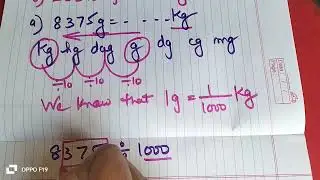 a) 8375g = ...... kg
kg hg dag g dg cg mg
÷10 ÷10 ÷10
We know that 1g = 1/1000 kg
8375 ÷ 1000
OPPO F19